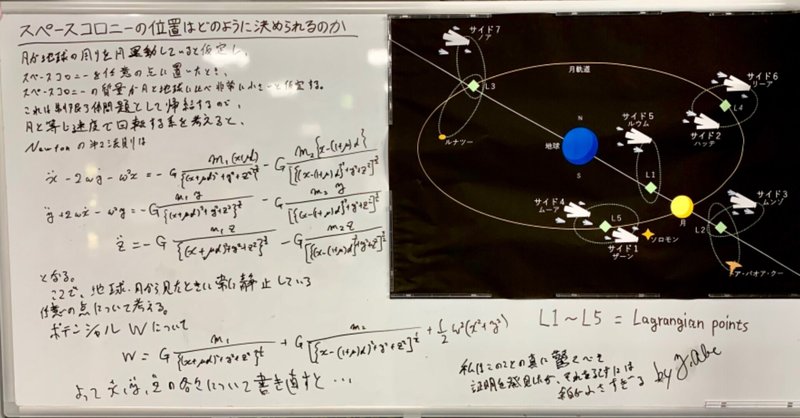 スペースコロニーの位置はどのように決められるのか
月が地球の周りを円運動していると仮定し、
スペースコロニーを任意の点に置いたとき、
スペースコロニーの質量が月と地球に比べ非常に小さいと仮定する。
これは制限3体問題として帰結するので、
月と等しい速度で回転する系を考えると、
Newtonの第2法則は
ẍ - 2ωẏ - ω²x = -G m₁(x+μd)/{(x+μd)²+y²+z²}^{3/2} - G m₂{x-(1-μ)d}/[{x-(1-μ)d}²+y²+z²]^{3/2}
ÿ + 2ωẋ - ω²y = -G m₁y/{(x+μd)²+y²+z²}^{3/2} - G m₂y/[{x-(1-μ)d}²+y²+z²]^{3/2}
z̈ = -G m₁z/{(x+μd)²+y²+z²}^{3/2} - G m₂z/[{x-(1-μ)d}²+y²+z²]^{3/2}
となる。
ここで、地球・月から見たときに常に静止している
任意の点について考える。
ポテンシャル Wについて
W = G m₁/{(x+μd)²+y²+z²}^{1/2} + G m₂/[{x-(1-μ)d}²+y²+z²]^{1/2} + 1/2 ω²(x²+y²)
よって ẍ, ÿ, z̈の各々について書き直すと…
サイド7
ノア
L3
ルナツー
月軌道
サイド6
リーア
L4
サイド2
ハッテ
N
地球
S
サイド5
ルウム
L1
月
サイド3
ムンゾ
L2
ア・バオア・クー
サイド4
ムーア
L5
サイド1
ザーン
ソロモン
L1～L5 = Lagrangian points
私はこのことの真に驚くべき
証明を発見したが、それを記すには
余白が小さすぎる
by J.Abe